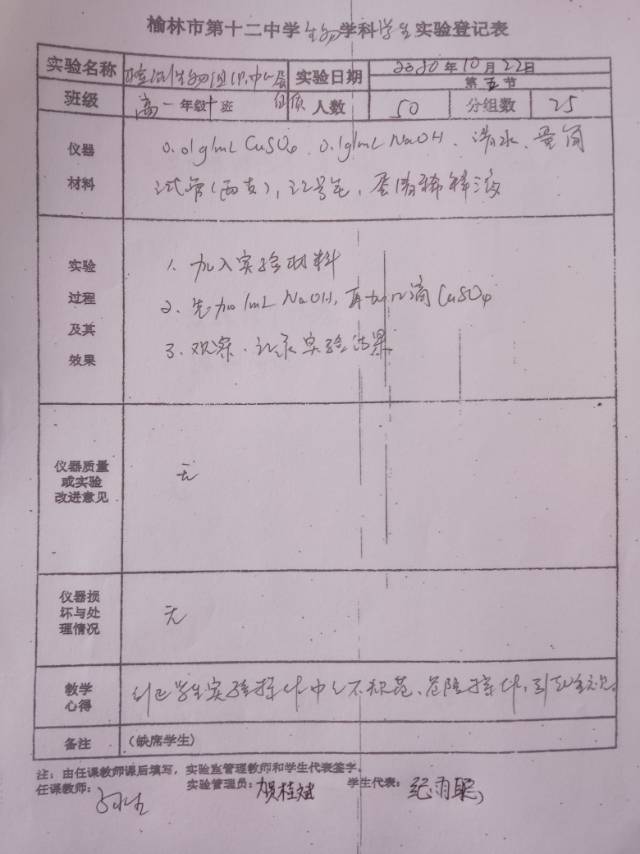 榆林市第十二中学生物学科学生实验登记表
实验名称 检测生物组织中的蛋白质 实验日期 2020年10月22日
第五节
班级 高一年级十班 人数 50 分组数 25
仪器材料 0.01g/mL CuSO4、0.1g/mL NaOH、清水、量筒
试管(两支)、记号笔、蛋清稀释液
实验过程及其效果 1、加入实验材料
2、先加1mL NaOH,再加4滴CuSO4
3、观察、记录实验结果
仪器质量或实验改进意见 无
仪器损坏与处理情况 无
教学心得 纠正学生实验操作中的不规范、危险操作,引
备注 (缺席学生)
注:由任课教师课后填写,实验室管理教师和学生代表签字。
任课教师: 实验管理员:贺桂斌 学生代表:纪雨聪